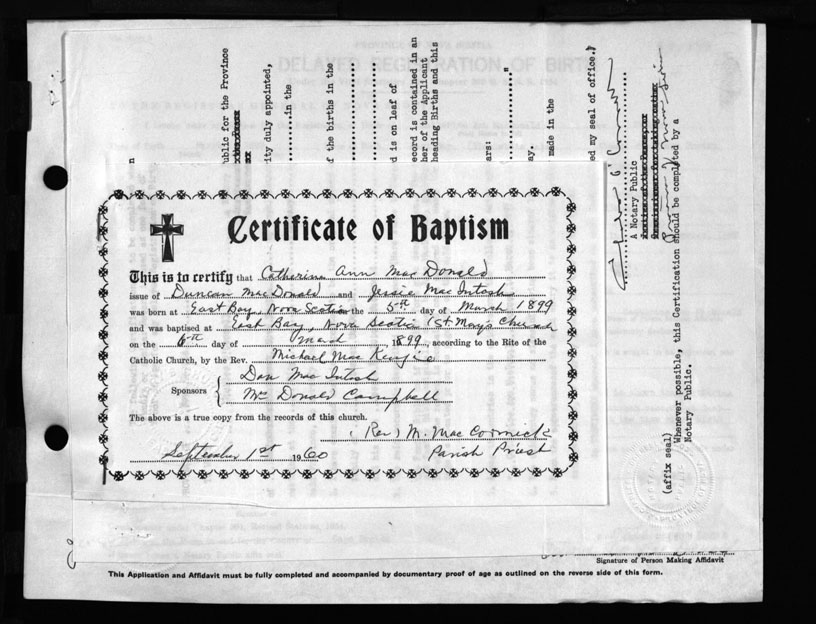 Certificate of Baptism
This is to certify that Catherine Ann MacDonald
issue of Duncan MacDonald and Jessie MacIntosh
was born at East Bay, Nova Scotia the 5th day of March 1899
and was baptised at East Bay, Nova Scotia (St Mary's Church
on the 6th day of March, 1899, according to the Rite of the
Catholic Church, by the Rev. Michael MacKenzie
Sponsors { Dan MacIntosh
Mrs Donald Campbell
The above is a true copy from the records of this church.
(Rev) M. MacCormick
September 1st 1960 Parish Priest
ublic for the Province
ity duly appointed,
in the
f the births in the
d is on leaf of
ecord is contained in an
her of the Applicant
heading Births and this
ars:
ay.
made in the
ed my seal of office.)
A Notary Public
Whenever possible, this Certification should be completed by a
Notary Public.
(affix seal)
Signature of Person Making Affidavit
This Application and Affidavit must be fully completed and accompanied by documentary proof of age as outlined on the reverse side of this form.